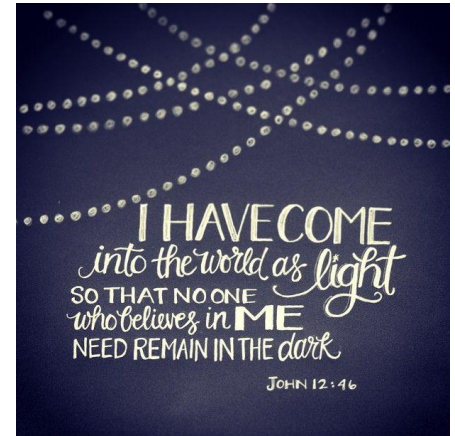 I HAVE COME
into the world as light
SO THAT NO ONE
who believes in ME
NEED REMAIN IN THE dark
JOHN 12:46